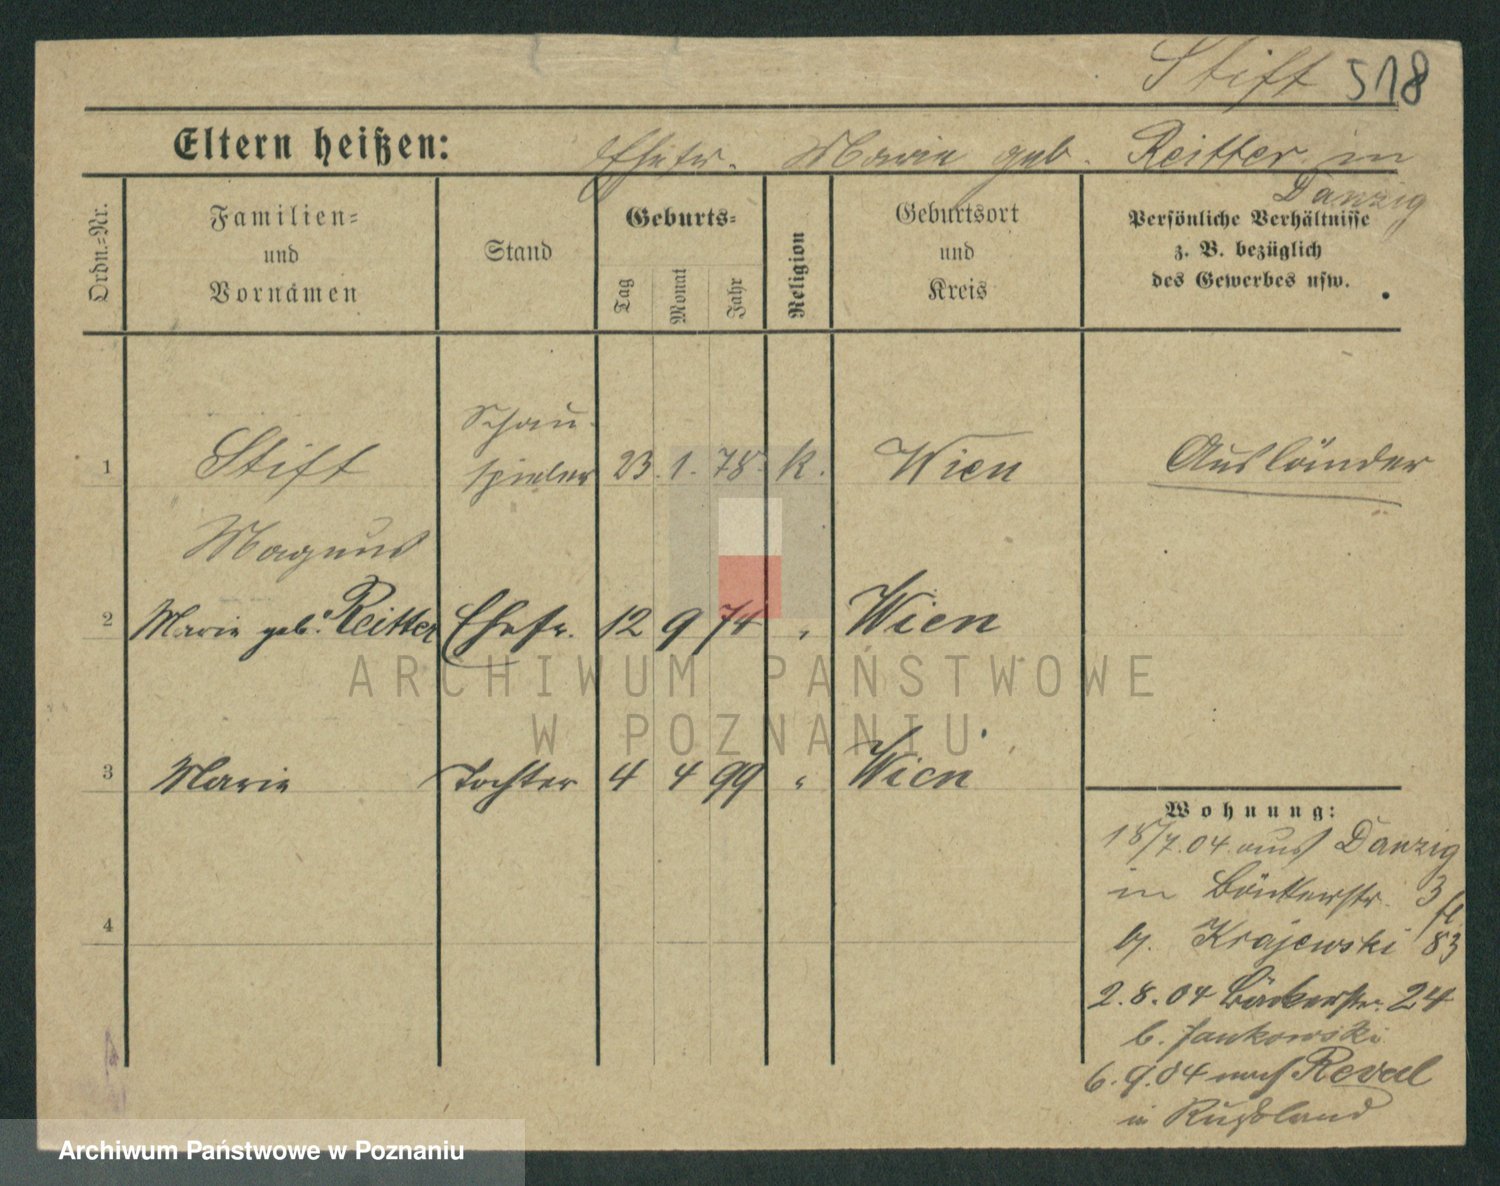 Stift 518
Eltern heißen: Ehefr. Marie geb. Reitter in
Danzig
Ordn.=Nr.
Familien=
und
Vornamen
Stand
Geburts=
Tag
Monat
Jahr
Religion
Geburtsort
und
Kreis
Persönliche Verhältnisse
z. B. bezüglich
des Gewerbes usw.
1 Stift Schau-
spieler 23. 1. 78. k. Wien Ausländer
Magnus
2 Marie geb. Reitter Ehefr. 12 9 74 " Wien
3 Marie Tochter 4 4 99 " Wien
4
Wohnung:
18/7.04. aus Danzig
in Bäckerstr. 3
b. Krajewski 83
2. 8. 04 Bäckerstr. 24
b. Jankowski
6. 9. 04 nach Reval
in Rußland
ARCHIWUM PAŃSTWOWE
W POZNANIU
Archiwum Państwowe w Poznaniu